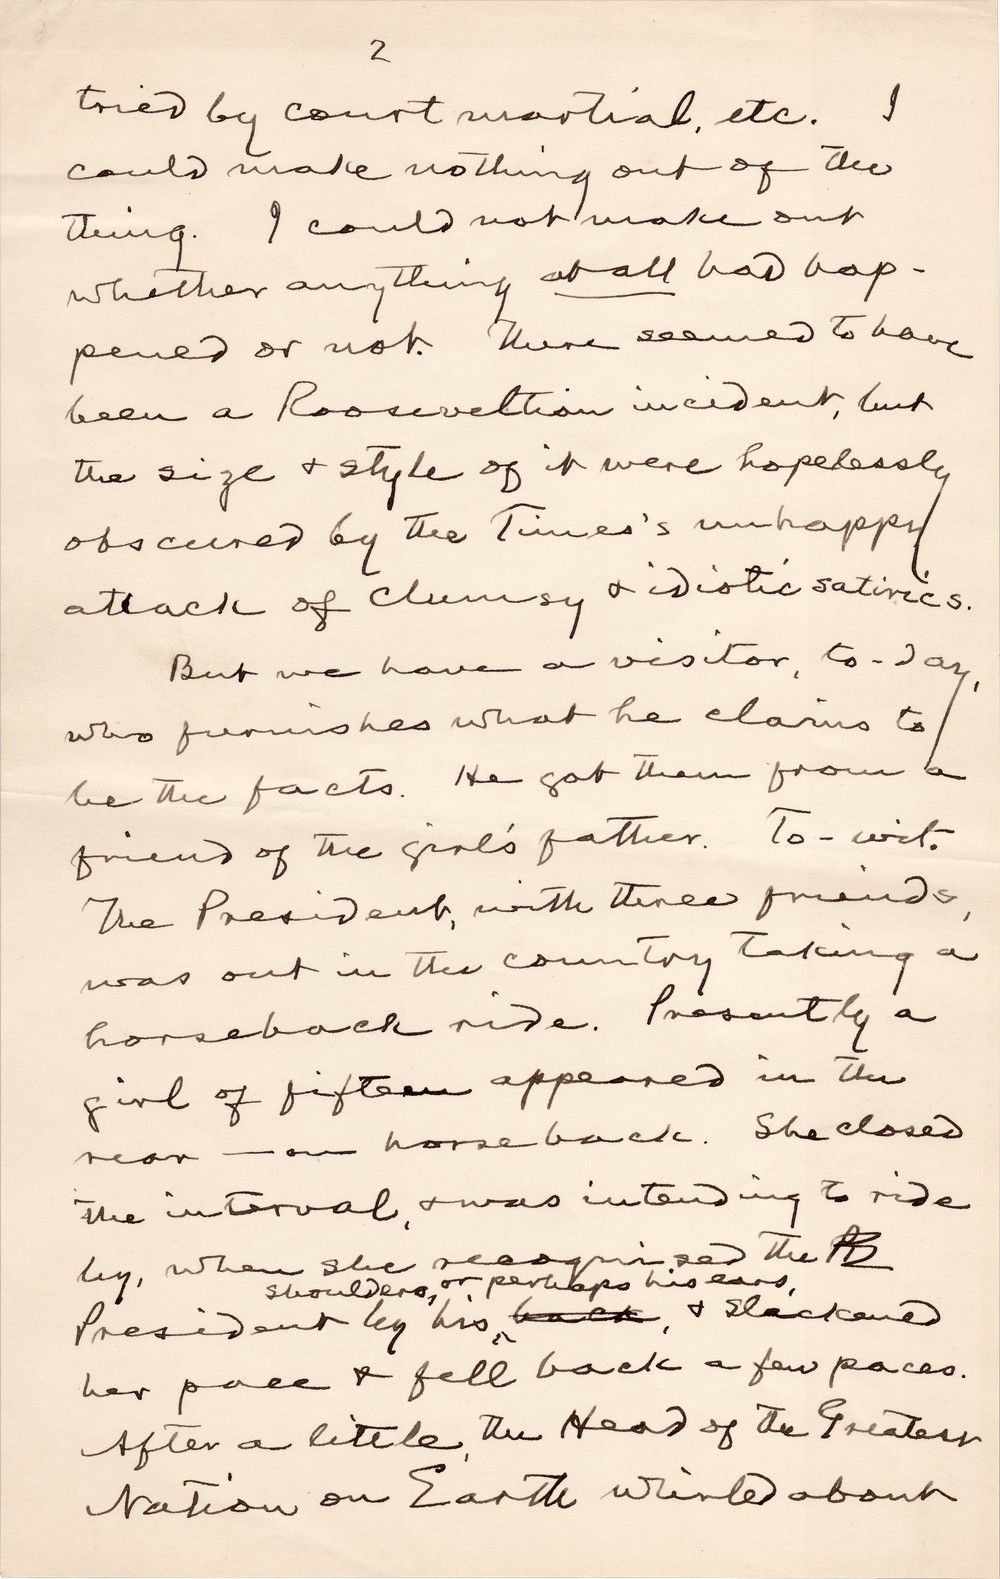 2
tried by court martial, etc. I
could make nothing out of the
thing. I could not make out
whether anything at all had hap-
pened or not. There seemed to have
been a Rooseveltion incident, but
the size & style of it were hopelessly
obscured by the Times's unhappy
attack of clumsy & idiotic satirics.
But we have a visitor, to-day,
who furnishes what he claims to
be the facts. He got them from a
friend of the girl's father. To-wit.
The President, with three friends,
was out in the country taking a
horseback ride. Presently a
girl of fifteen appeared in the
rear — on horseback. She closed
the interval, & was intending to ride
by, when she recognised the
shoulders, or perhaps his ears,
President by his back, & slackened
her pace & fell back a few paces.
After a little, the Head of the Greatest
Nation on Earth whirled about